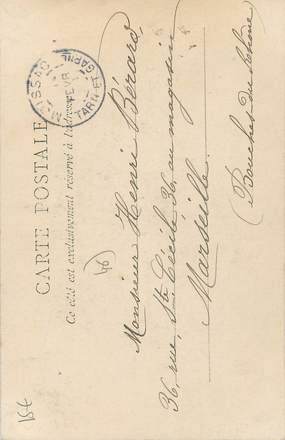 CARTE POSTALE
Ce côté est exclusivement réservé à l'adresse
MOISSAC
FEVR
TARN-ET-GARNE
Monsieur Henri Bérard
36, rue Ste Cécile 36, au magasin
Marseille.
(Bouches du Rhône
(46)
15€